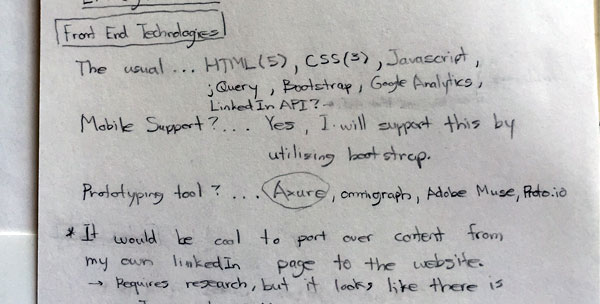 Front End Technologies
The usual... HTML(5), CSS(3), Javascript,
jQuery, Bootstrap, Google Analytics,
LinkedIn API?
Mobile Support?... Yes, I will support this by
utilising bootstrap.
Prototyping tool?... Axure, omnigraph, Adobe Muse, Proto.io
* It would be cool to port over content from
my own linkedIn page to the website.
→ Requires research, but it looks like there is